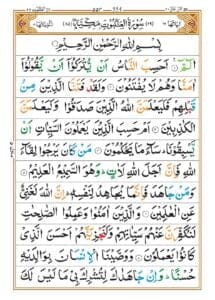 سُوْرَةُ الْعَنْكَبُوْتِ مَكِّيَّةٌ
بِسْمِ اللّٰهِ الرَّحْمٰنِ الرَّحِيْمِ
الٓمّٓ اَحَسِبَ النَّاسُ اَنْ يُّتْرَكُوْۤا اَنْ يَّقُوْلُوْۤا
اٰمَنَّا وَهُمْ لَا يُفْتَنُوْنَ وَلَقَدْ فَتَنَّا الَّذِيْنَ مِنْ
قَبْلِهِمْ فَلَيَعْلَمَنَّ اللّٰهُ الَّذِيْنَ صَدَقُوْا وَلَيَعْلَمَنَّ
الْكٰذِبِيْنَ اَمْ حَسِبَ الَّذِيْنَ يَعْمَلُوْنَ السَّيِّاٰتِ اَنْ
يَّسْبِقُوْنَا سَآءَ مَا يَحْكُمُوْنَ مَنْ كَانَ يَرْجُوْا لِقَآءَ
اللّٰهِ فَاِنَّ اَجَلَ اللّٰهِ لَاٰتٍ وَهُوَ السَّمِيْعُ الْعَلِيْمُ
وَمَنْ جَاهَدَ فَاِنَّمَا يُجَاهِدُ لِنَفْسِهٖ اِنَّ اللّٰهَ لَغَنِيٌّ
عَنِ الْعٰلَمِيْنَ وَالَّذِيْنَ اٰمَنُوْا وَعَمِلُوا الصّٰلِحٰتِ
لَنُكَفِّرَنَّ عَنْهُمْ سَيِّاٰتِهِمْ وَلَنَجْزِيَنَّهُمْ اَحْسَنَ الَّذِيْ
كَانُوْا يَعْمَلُوْنَ وَوَصَّيْنَا الْاِنْسَانَ بِوَالِدَيْهِ
حُسْنًا وَاِنْ جَاهَدٰكَ لِتُشْرِكَ بِيْ مَا لَيْسَ لَكَ